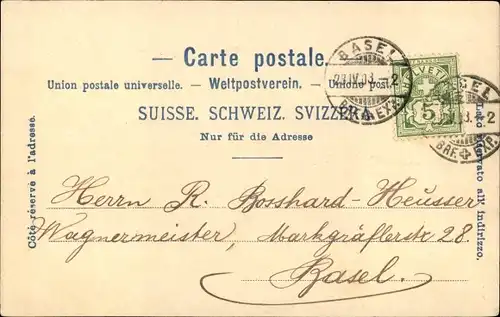 — Carte postale. —
Union postale universelle. — Weltpostverein. — Unione post
SUISSE. SCHWEIZ. SVIZZERA.
Nur für die Adresse
Côté réservé à l'adresse.
Lato riservato all' indirizzo.
HELVETIA
5
BASEL
BRF. EXP.
BASEL
BRF. EXP.
Herrn R. Bosshard-Heusser
Wagnermeister, Markgräflerstr 28.
Basel.